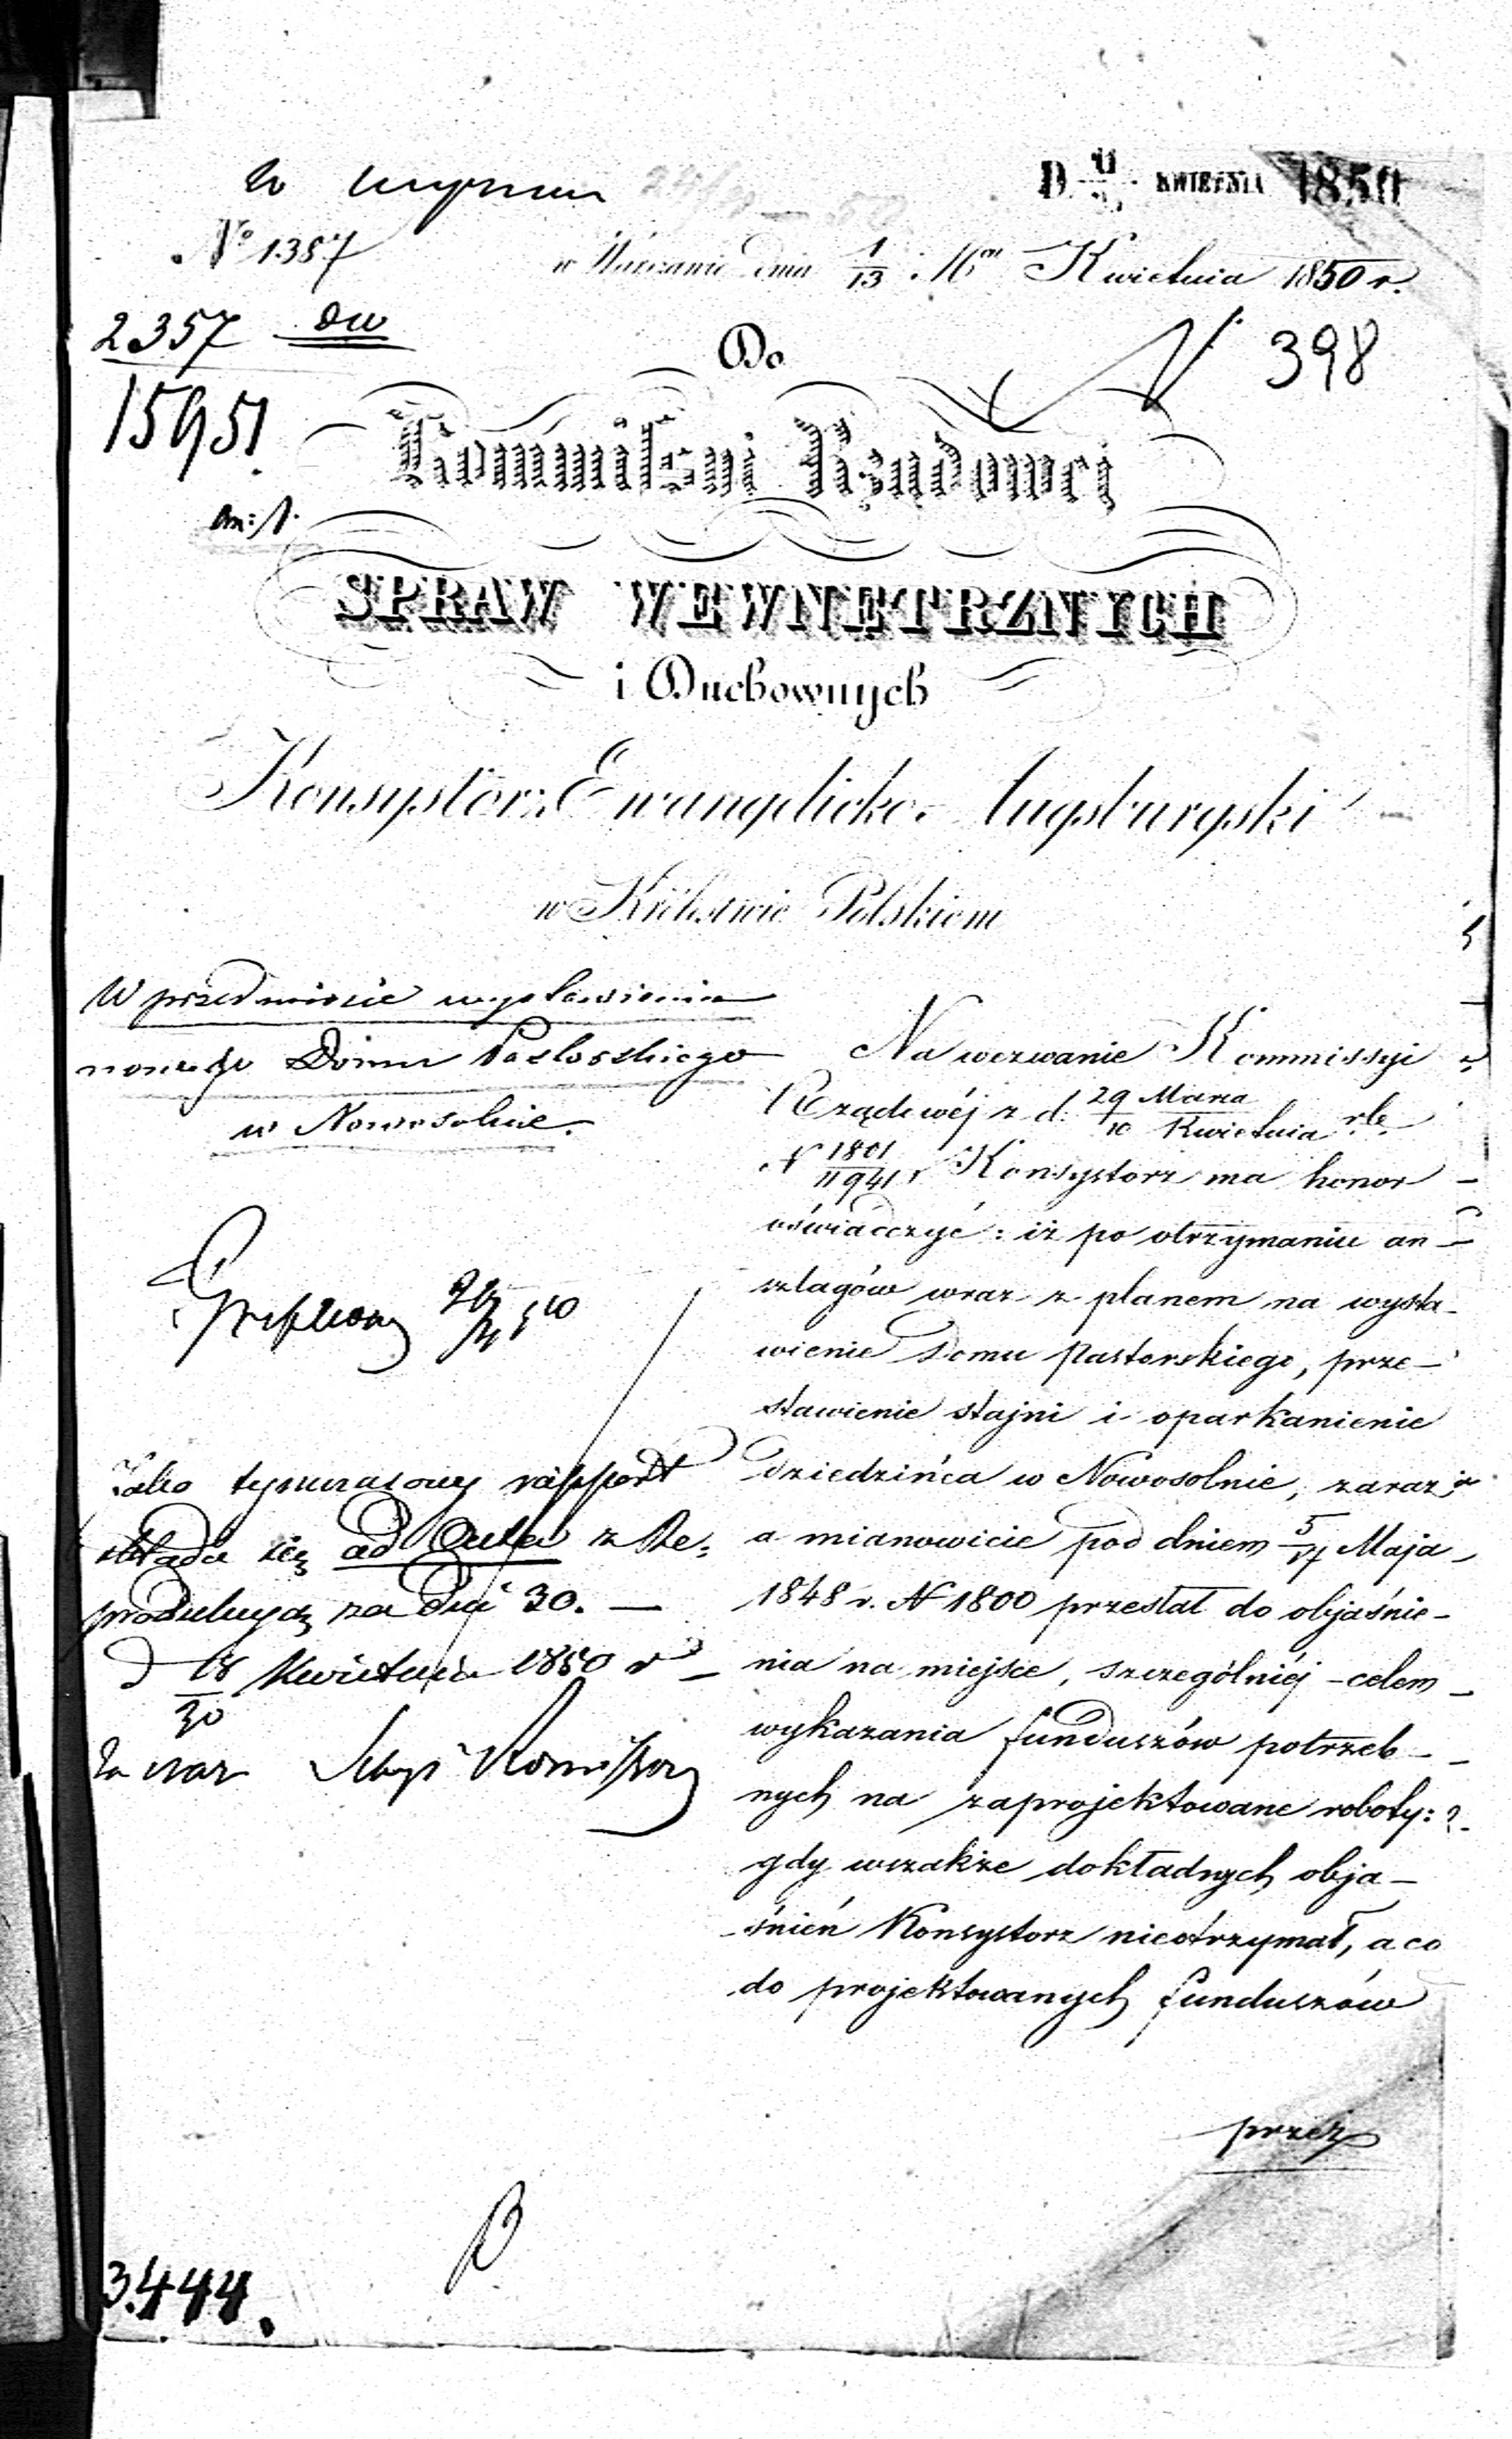 D. KWIETNIA 1850
No 1387
w Warszawie dnia 1/13 Mca Kwietnia 1850 r.
2357
N 398
15951
Do
Kommissyi Rządowej
SPRAW WEWNĘTRZNYCH
i Duchownych
Konsystorz Ewangelicko-Augsburgski
w Królestwie Polskiem
W przedmiocie wystawienia
nowego Domu Pastorskiego
w Nowosolnie.
Na wezwanie Kommissyi
Rządowéj z d. 29 Marca/10 Kwietnia r. b.
N 1801/11941, Konsystorz ma honor
oświadczyć: iż po otrzymaniu an-
szlagów wraz z planem na wysta-
wienie Domu Pastorskiego, prze-
stawienie stajni i oparkanienie
dziedzińca w Nowosolnie, zaraz
a mianowicie pod dniem 5/17 Maja
1848 r. N 1800 przesłał do objaśnie-
nia na miejsce, szczególniéj celem
wykazania funduszów potrzeb-
nych na zaprojektowane roboty:
gdy wszakże dokładnych obja-
śnień Konsystorz nieotrzymał, a co
do projektowanych funduszów
przez
Jako tymczasowy rapport
składa się ad Acta z Re-
produkcyą za dni 30.
d 18/30 Kwietnia 1850 r
3444.